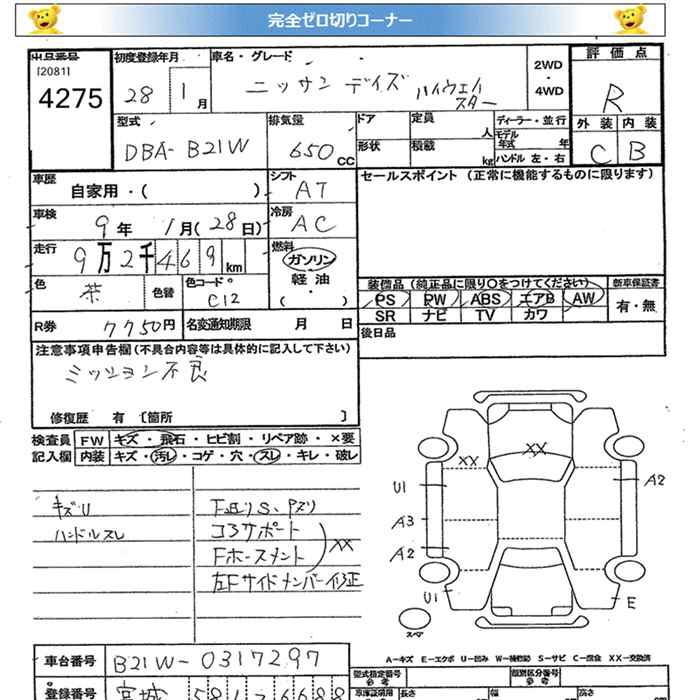 完全ゼロ切りコーナー
出品番号
[2081]
4275
初度登録年月
28 1月
車名・グレード
ニッサン デイズ ハイウェイスター
2WD
・
4WD
評価点
R
外装 内装
C B
型式
DBA-B21W
排気量
650CC
ドア
形状
定員 人
積載 kg
ディーラー・並行
モデル年式 年
ハンドル 左・右
車歴
自家用・( )
シフト
AT
セールスポイント (正常に機能するものに限ります)
車検
9年 1月(28日)
冷房
AC
走行
9万2千469km
燃料
ガソリン
軽油
・
( )
色
茶
色替
色コード
C12
装備品(純正品に限り○をつけてください)
PS PW ABS エアB AW
SR ナビ TV カワ
新車保証書
有・無
R券 7750円
名変通知期限 月 日
後日品
注意事項申告欄(不具合内容等は具体的に記入して下さい)
ミッション不良
修復歴 有 [箇所 ]
検査員
記入欄
FW キズ・飛石・ヒビ割・リペア跡・×要
内装 キズ・汚レ・コゲ・穴・スレ・キレ・破レ
キズU
ハンドルスレ
F廻りS、Pズリ
コアサポート
Fホースメント
XX
左Fサイドメンバー修正
XX
XX
U1
A2
A3
A2
U1
E
スペア
A-キズ E-エクボ U-凹み W-補修跡 S-サビ C-腐食 XX-交換済
車台番号
B21W-0317297
登録番号
宮城 581 6688
型式指定番号
参考
類別区分番号
参考
車庫証明用
長さ
幅
高さ